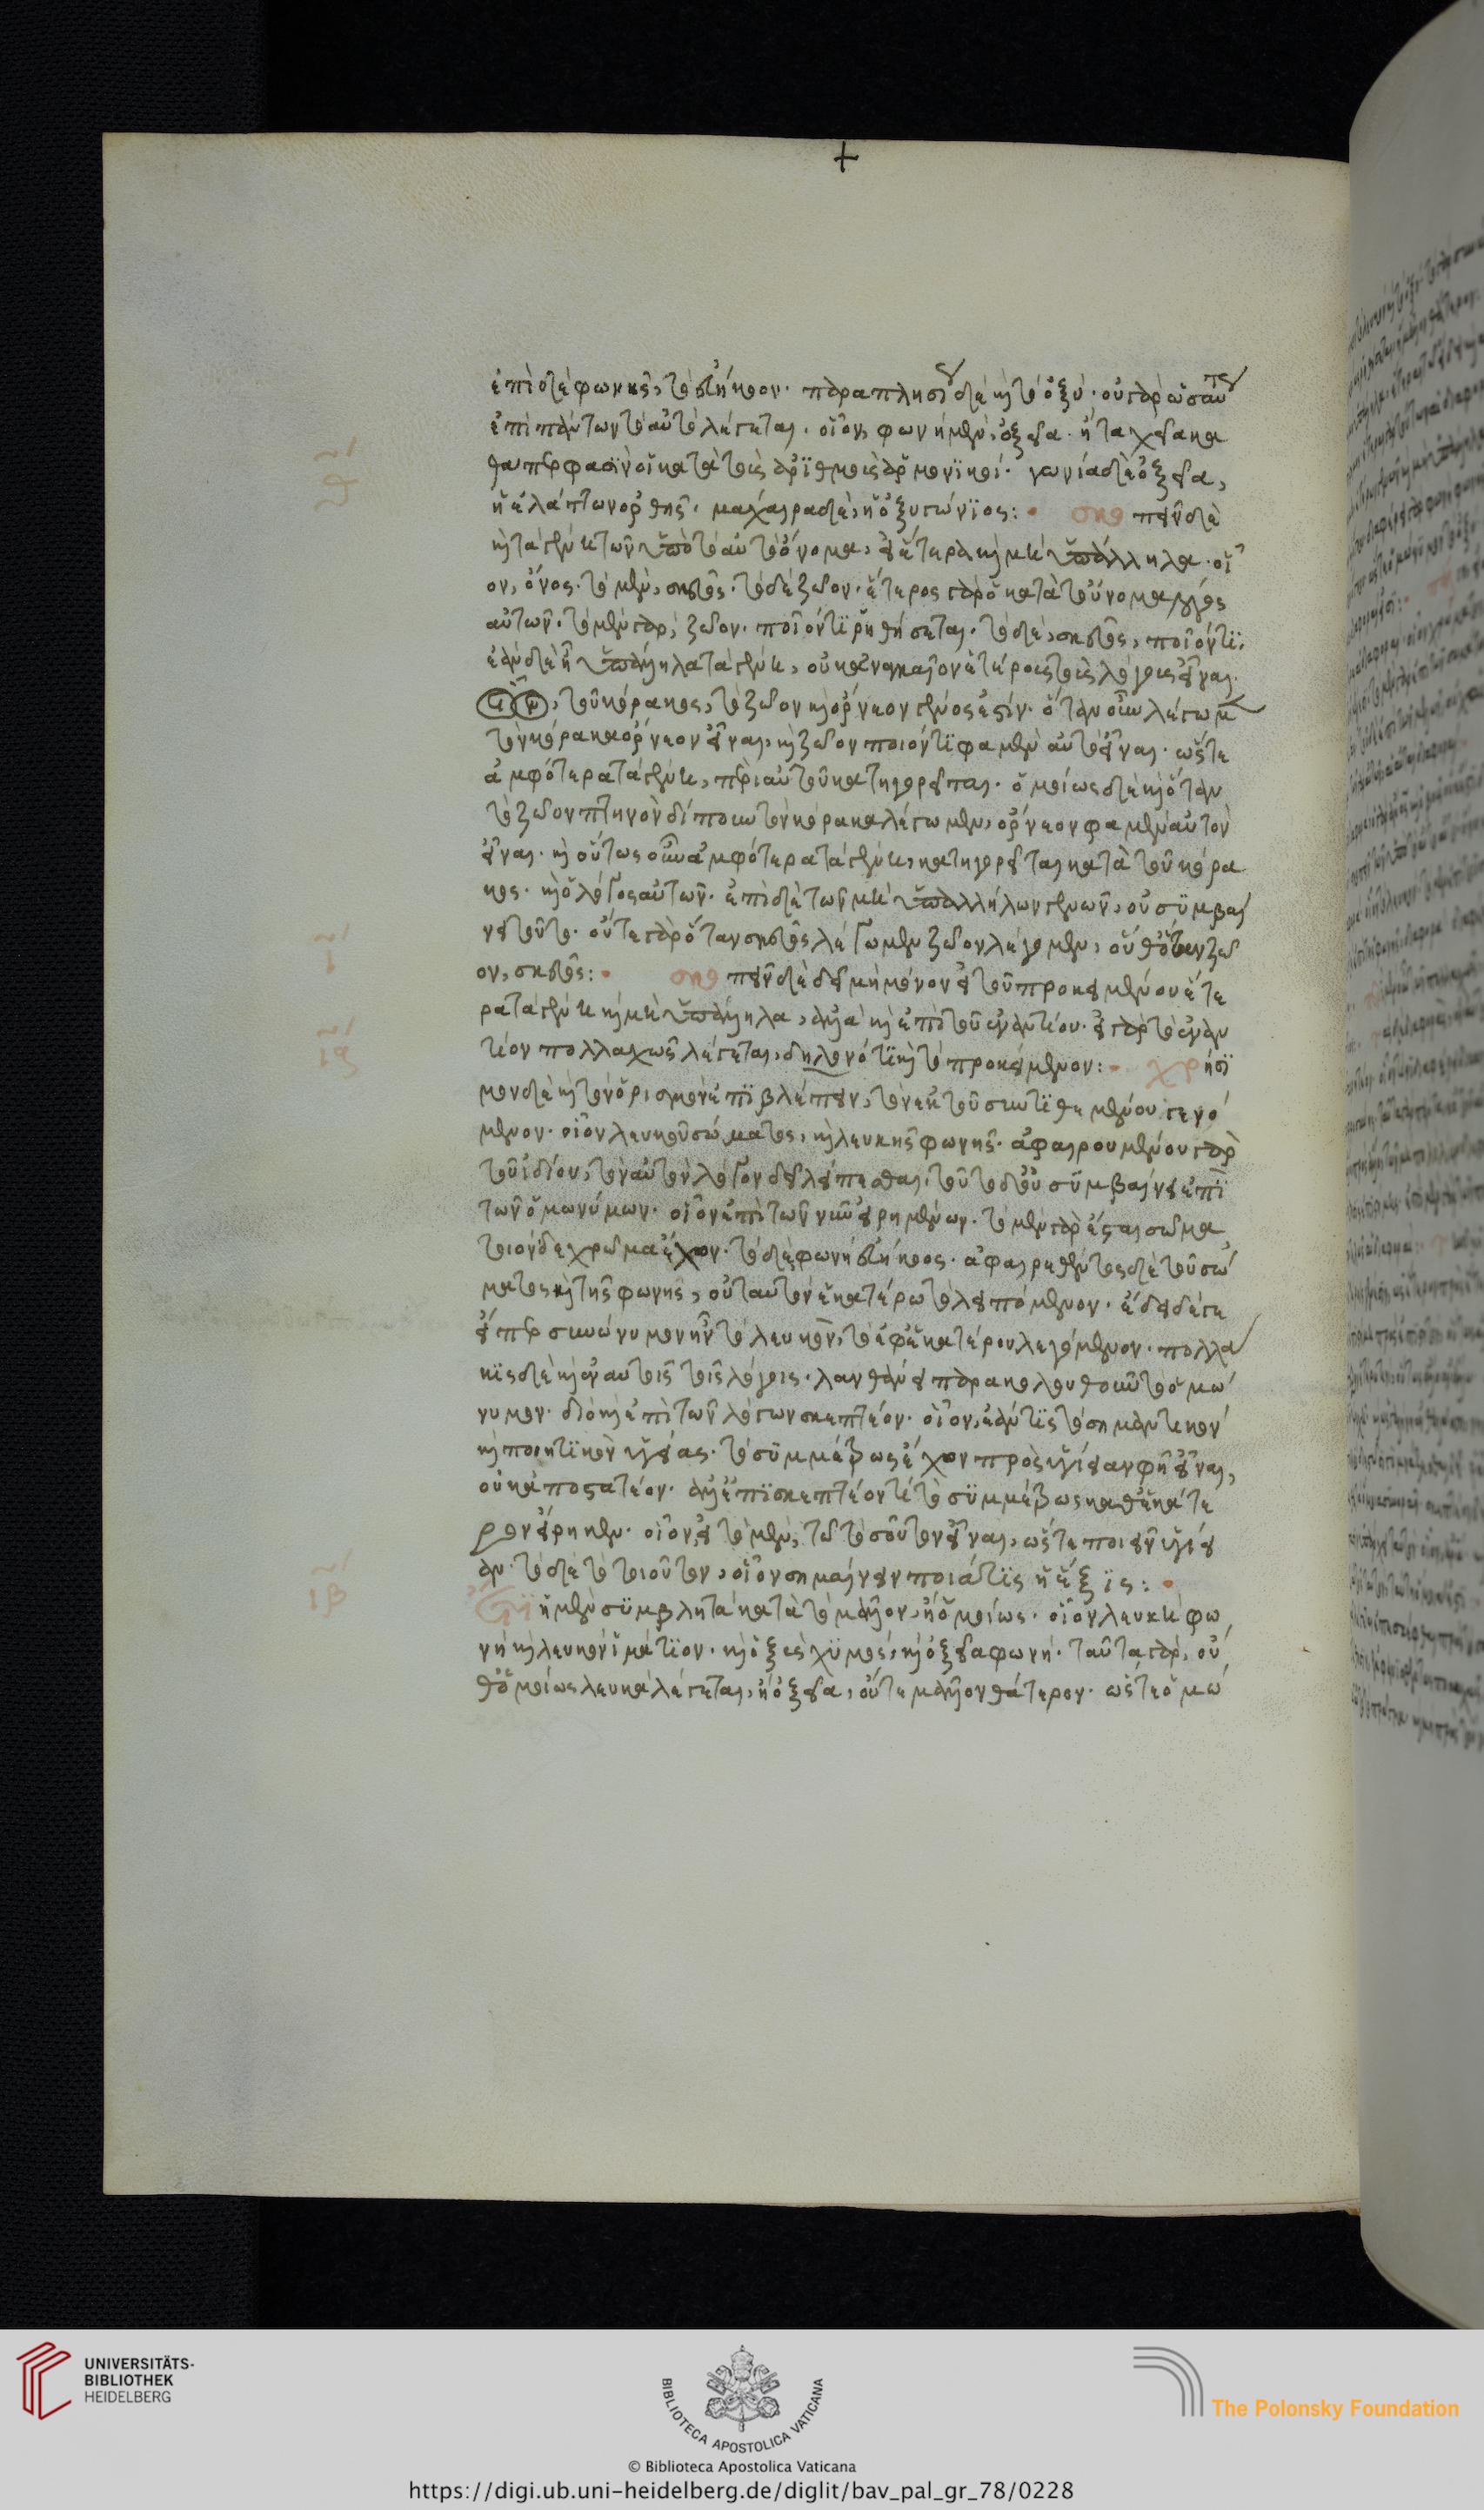 ἐπὶ δὲ φωνῆς, τὸ εὐήκοον. παραπλησίως δὲ καὶ τὸ ὀξύ. οὐ γὰρ ὡσαύτως
ἐπὶ πάντων τὸ αὐτὸ λέγεται. οἷον, φωνὴ μὲν, ὀξεῖα. ἡ ταχεῖα κα
θάπερ φασὶν οἱ κατὰ τοὺς ἀριθμοὺς ἁρμονικοί. γωνία δὲ ὀξεῖα,
ἡ ἐλάττων ὀρθῆς. μάχαιρα δὲ, ἡ ὀξυγώνιος: σκο πεῖν δὲ
καὶ τὰ γένη τῶν ὑπὸ τὸ αὐτὸ ὄνομα, εἰ ἕτερα καὶ μὴ ὑπάλληλα. οἷ
ον, ὄνος. τὸ μὲν, σκεῦος. τὸ δὲ ζῶον. ἕτερος γὰρ ὁ κατὰ τοὔνομα λόγος
αὐτῶν. τὸ μὲν γὰρ, ζῶον. ποῖόν τι ῥηθήσεται. τὸ δὲ, σκεῦος, ποῖόν τι.
ἐὰν δὲ ᾖ ὑπάλληλα τὰ γένη, οὐκ ἀναγκαῖον ἑτέρους τοὺς λόγους εἶναι.
οἷον, τοῦ κόρακος, τὸ ζῶον καὶ ὄρνεον γένος ἐστίν. ὅταν οὖν λέγωμεν
τὸν κόρακα ὄρνεον εἶναι, καὶ ζῶον ποιόν τι φαμὲν αὐτὸ εἶναι. ὥστε
ἀμφότερα τὰ γένη, περὶ αὐτοῦ κατηγορεῖται. ὁμοίως δὲ καὶ ὅταν
τὸ ζῶον πτηνὸν δίπουν τὸν κόρακα λέγωμεν, ὄρνεον φαμὲν αὐτὸν
εἶναι. καὶ οὕτως οὖν ἀμφότερα τὰ γένη, κατηγορεῖται κατὰ τοῦ κόρα
κος. καὶ ὁ λόγος αὐτῶν. ἐπὶ δὲ τῶν μὴ ὑπαλλήλων γενῶν, οὐ συμβαί
νει τοῦτο. οὔτε γὰρ ὅταν σκεῦος λέγωμεν ζῶον λέγομεν, οὔθ' ὅταν ζῶ
ον, σκεῦος: σκο πεῖν δὲ δεῖ μὴ μόνον εἰ τοῦ προκειμένου ἕτε
ρα τὰ γένη καὶ μὴ ὑπάλληλα, ἀλλὰ καὶ ἐπὶ τοῦ ἐναντίου. εἰ γὰρ τὸ ἐναν
τίον πολλαχῶς λέγεται, δηλονότι καὶ τὸ προκείμενον: χρ ήσι
μον δὲ καὶ τὸν ὁρισμὸν ἐπιβλέπειν, τὸν ἐκ τοῦ συντιθεμένου γενό
μενον. οἷον λευκοῦ σώματος, καὶ λευκῆς φωνῆς. ἀφαιρουμένου γὰρ
τοῦ ἰδίου, τὸν αὐτὸν λόγον δεῖ λείπεσθαι. τοῦτο δ' οὐ συμβαίνει ἐπὶ
τῶν ὁμωνύμων. οἷον ἐπὶ τῶν νῦν εἰρημένων. τὸ μὲν γὰρ ἔσται σῶμα
τοιόνδε χρῶμα ἔχον. τὸ δὲ, φωνὴ εὐήκοος. ἀφαιρεθέντος δὲ τοῦ σώ
ματος καὶ τῆς φωνῆς, οὐ ταυτὸν ἑκατέρω τὸ λειπόμενον. ἔδει δέ γε
εἴπερ συνώνυμον ἦν τὸ λευκὸν, τὸ ἐφ' ἑκατέρου λεγόμενον. πολλά
κις δὲ καὶ ἐν αὐτοῖς τοῖς λόγοις. λανθάνει παρακολουθοῦν τὸ ὁμώ
νυμον. διὸ καὶ ἐπὶ τῶν λόγων σκεπτέον. οἷον, ἐάν τις τὸ σημαντικὸν
καὶ ποιητικὸν ὑγείας. τὸ συμμέτρως ἔχον πρὸς ὑγίειαν φῇ εἶναι,
οὐκ ἀποστατέον. ἀλλ' ἐπισκεπτέον τί τὸ συμμέτρως καθ' ἑκάτε
ρον εἴρηκεν. οἷον, εἰ τὸ μὲν, τῶ τοσοῦτον εἶναι, ὥστε ποιεῖν ὑγίει
αν. τὸ δὲ τὸ τοιοῦτον, οἷον σημαίνειν ποία τις ἡ ἕξις:
ἔτι εἰ μὲν συμβλητὰ κατὰ τὸ μᾶλλον, ἢ ὁμοίως. οἷον λευκὴ φω
νὴ καὶ λευκὸν ἱμάτιον. καὶ ὀξὺς χυμὸς, καὶ ὀξεῖα φωνή. ταῦτα γὰρ, οὔ
θ' ὁμοίως λευκὰ λέγεται, ἢ ὀξεῖα, οὔτε μᾶλλον θάτερον. ὥστε ὁμώ
θ
ι
ια
ιβ
UNIVERSITÄTS-
BIBLIOTHEK
HEIDELBERG
BIBLIOTECA APOSTOLICA VATICANA
The Polonsky Foundation
© Biblioteca Apostolica Vaticana
https://digi.ub.uni-heidelberg.de/diglit/bav_pal_gr_78/0228